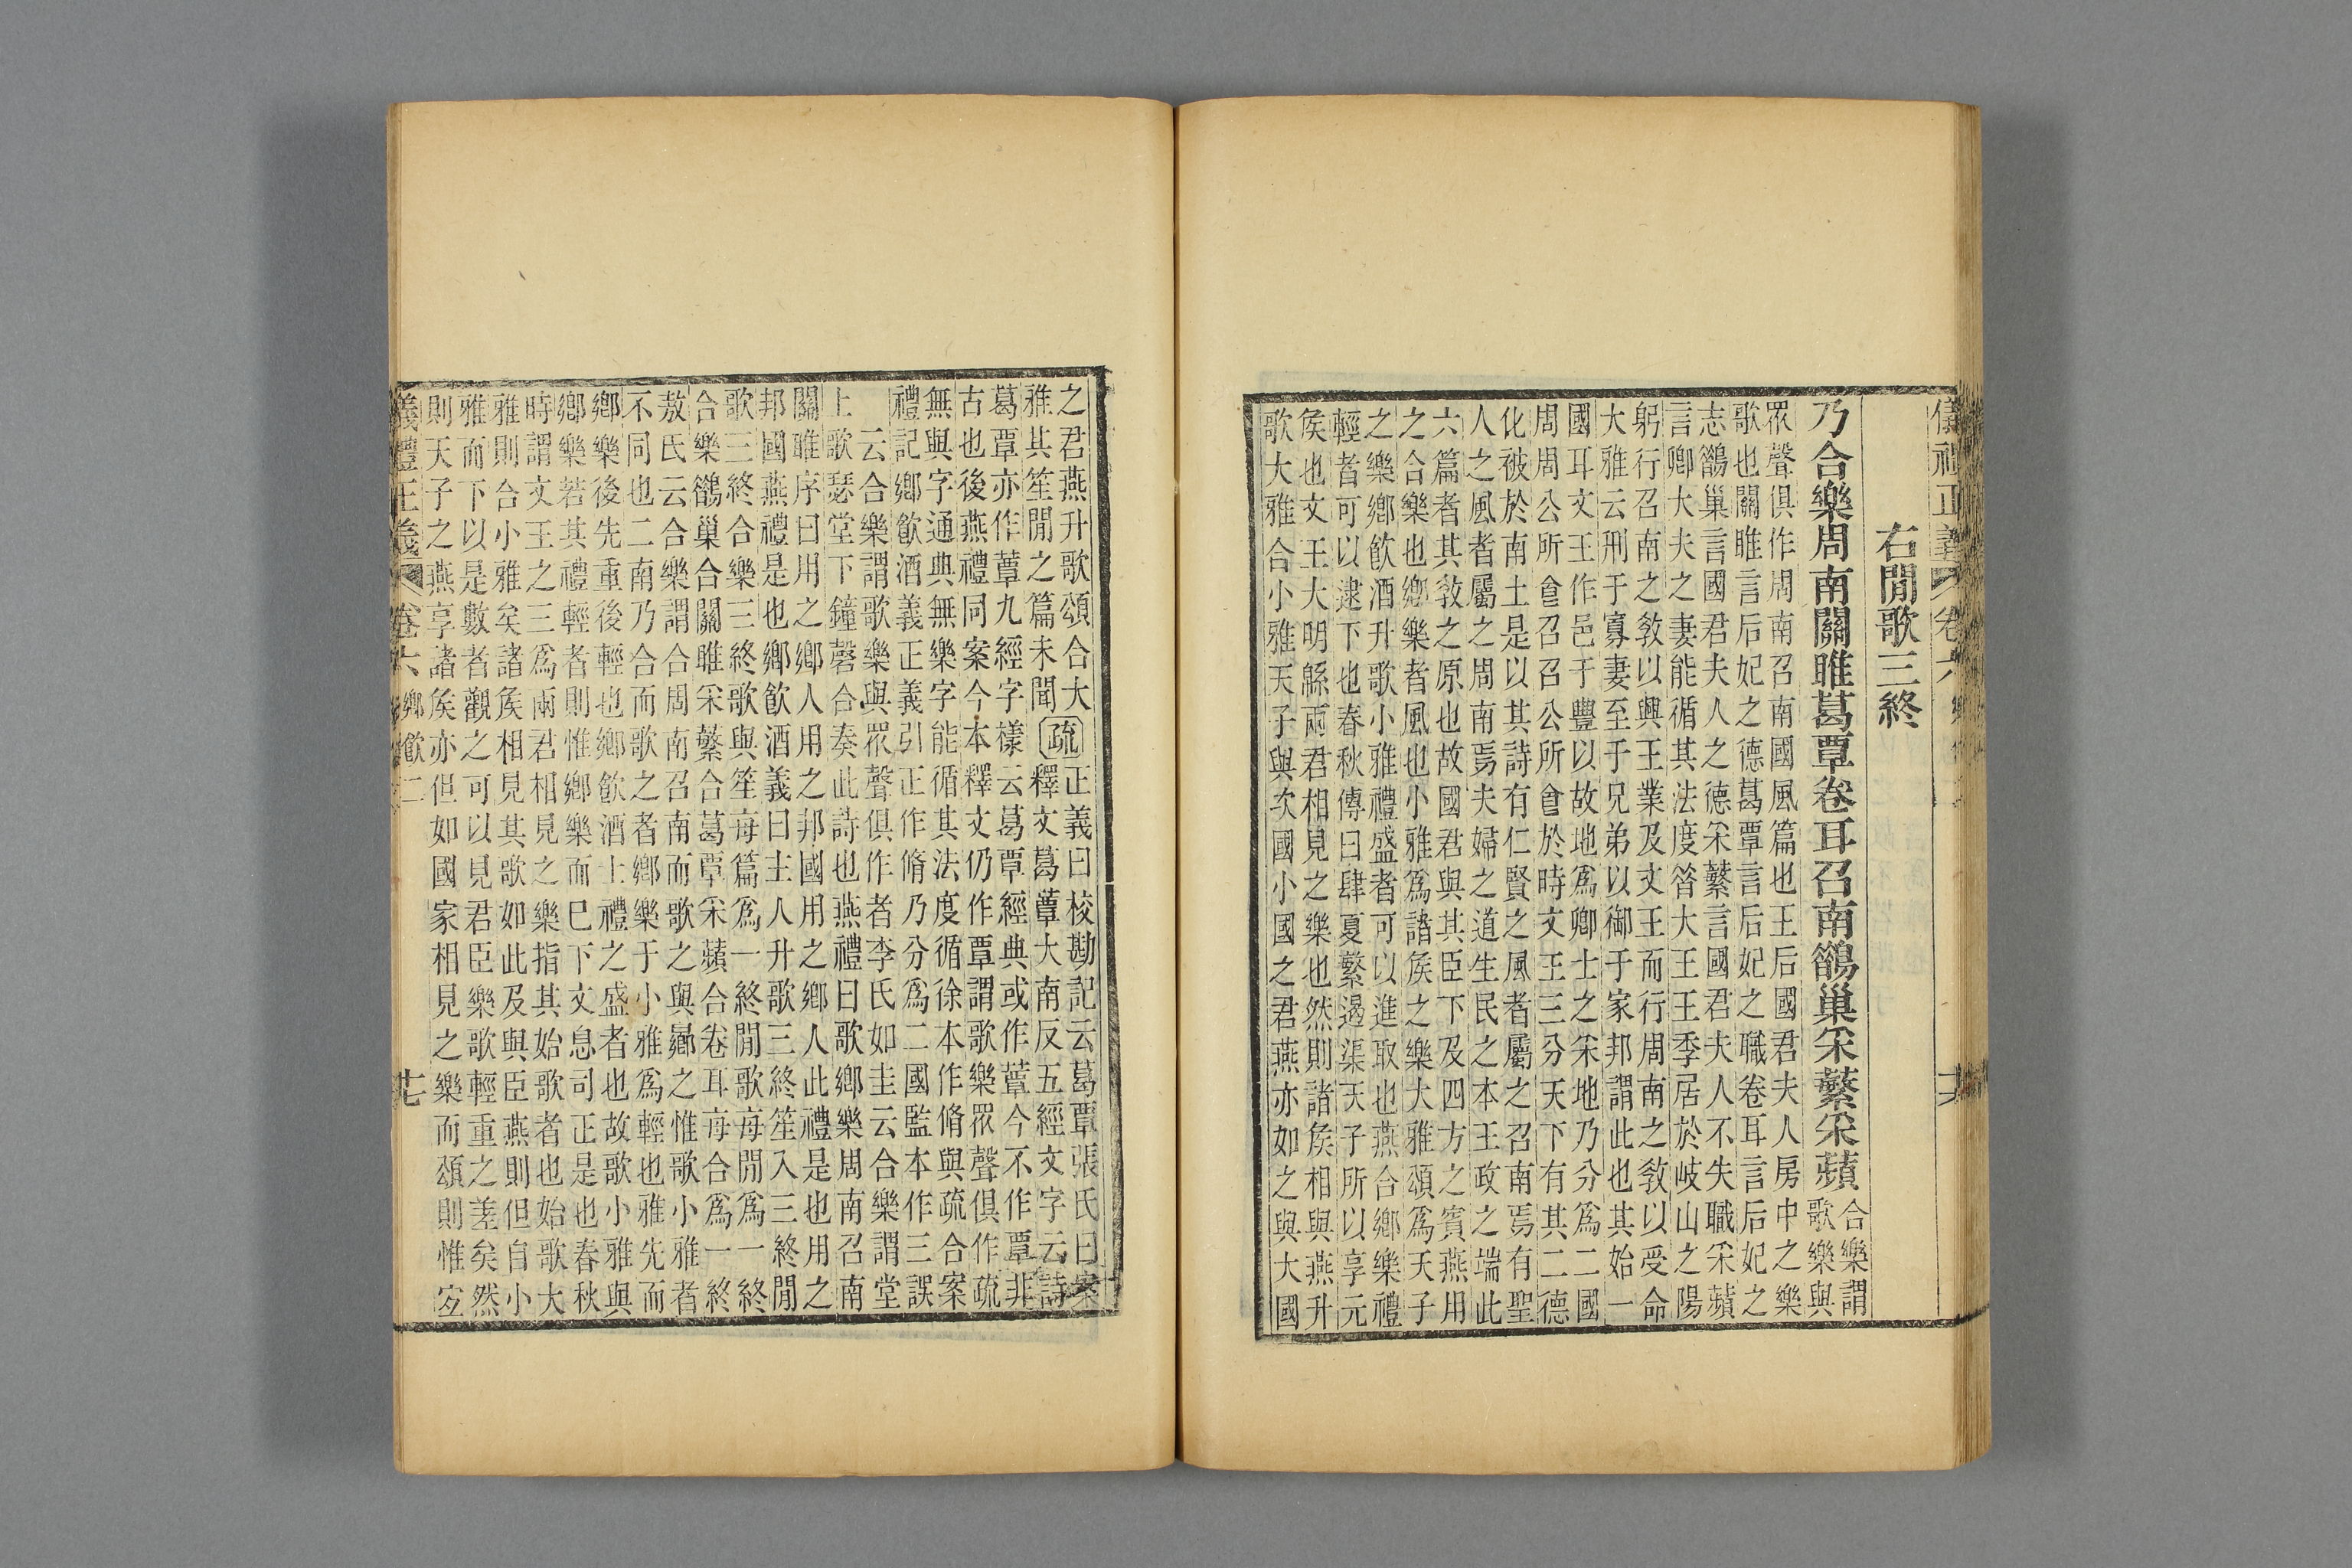 儀禮正義 卷六 鄉
右閒歌三終
乃合樂周南關雎葛覃卷耳召南鵲巢采蘩采蘋
合樂謂
歌樂與
眾聲俱作周南召南國風篇也王后國君夫人房中之樂
歌也關雎言后妃之德葛覃言后妃之職卷耳言后妃之
志鵲巢言國君夫人之德采蘩言國君夫人不失職采蘋
言卿大夫之妻能循其法度昝大王王季居於岐山之陽
躬行召南之敎以興王業及文王而行周南之敎以受命
大雅云刑于寡妻至于兄弟以御于家邦謂此也其始一
國耳文王作邑于豐以故地爲卿士之采地乃分爲二國
周周公所食召召公所食於時文王三分天下有其二德
化被於南土是以其詩有仁賢之風者屬之召南焉有聖
人之風者屬之周南焉夫婦之道生民之本王政之端此
六篇者其敎之原也故國君與其臣下及四方之賓燕用
之合樂也鄉樂者風也小雅爲諸矦之樂大雅頌爲天子
之樂鄉飮酒升歌小雅禮盛者可以進取也燕合鄉樂禮
輕者可以逮下也春秋傳曰肆夏繁遏渠天子所以享元
矦也文王大明緜兩君相見之樂也然則諸矦相與燕升
歌大雅合小雅天子與次國小國之君燕亦如之與大國
之君燕升歌頌合大疏正義曰校勘記云葛覃張氏曰案
雅其笙閒之篇未聞 釋文葛蕈大南反五經文字云詩
葛覃亦作蕈九經字樣云葛覃經典或作蕈今不作覃非
古也後燕禮同案今本釋文仍作覃謂歌樂眾聲俱作疏
無與字通典無樂字能循其法度循徐本作脩與疏合案
禮記鄉飮酒義正義引正作脩乃分爲二國監本作三誤
云合樂謂歌樂與眾聲俱作者李氏如圭云合樂謂堂
上歌瑟堂下鐘磬合奏此詩也燕禮曰歌鄉樂周南召南
關雎序曰用之鄉人用之邦國用之鄉人此禮是也用之
邦國燕禮是也鄉飮酒義曰主人升歌三終笙入三終閒
歌三終合樂三終歌與笙每篇爲一終閒歌每閒爲一終
合樂鵲巢合關雎采蘩合葛覃采蘋合卷耳每合爲一終
敖氏云合樂謂合周南召南而歌之與鄉之惟歌小雅者
不同也二南乃合而歌之者鄉樂于小雅爲輕也雅先而
鄉樂後先重後輕也鄉飮酒士禮之盛者也故歌小雅與
鄉樂若其禮輕者則惟鄉樂而已下文息司正是也春秋
時謂文王之三爲兩君相見之樂指其始歌者也始歌大
雅則合小雅矣諸矦相見其歌如此及與臣燕則但自小
雅而下以是數者觀之可以見君臣樂歌輕重之差矣然
則天子之燕享諸矦亦但如國家相見之樂而頌則惟宐
義禮正義 卷六 鄉飮二 七